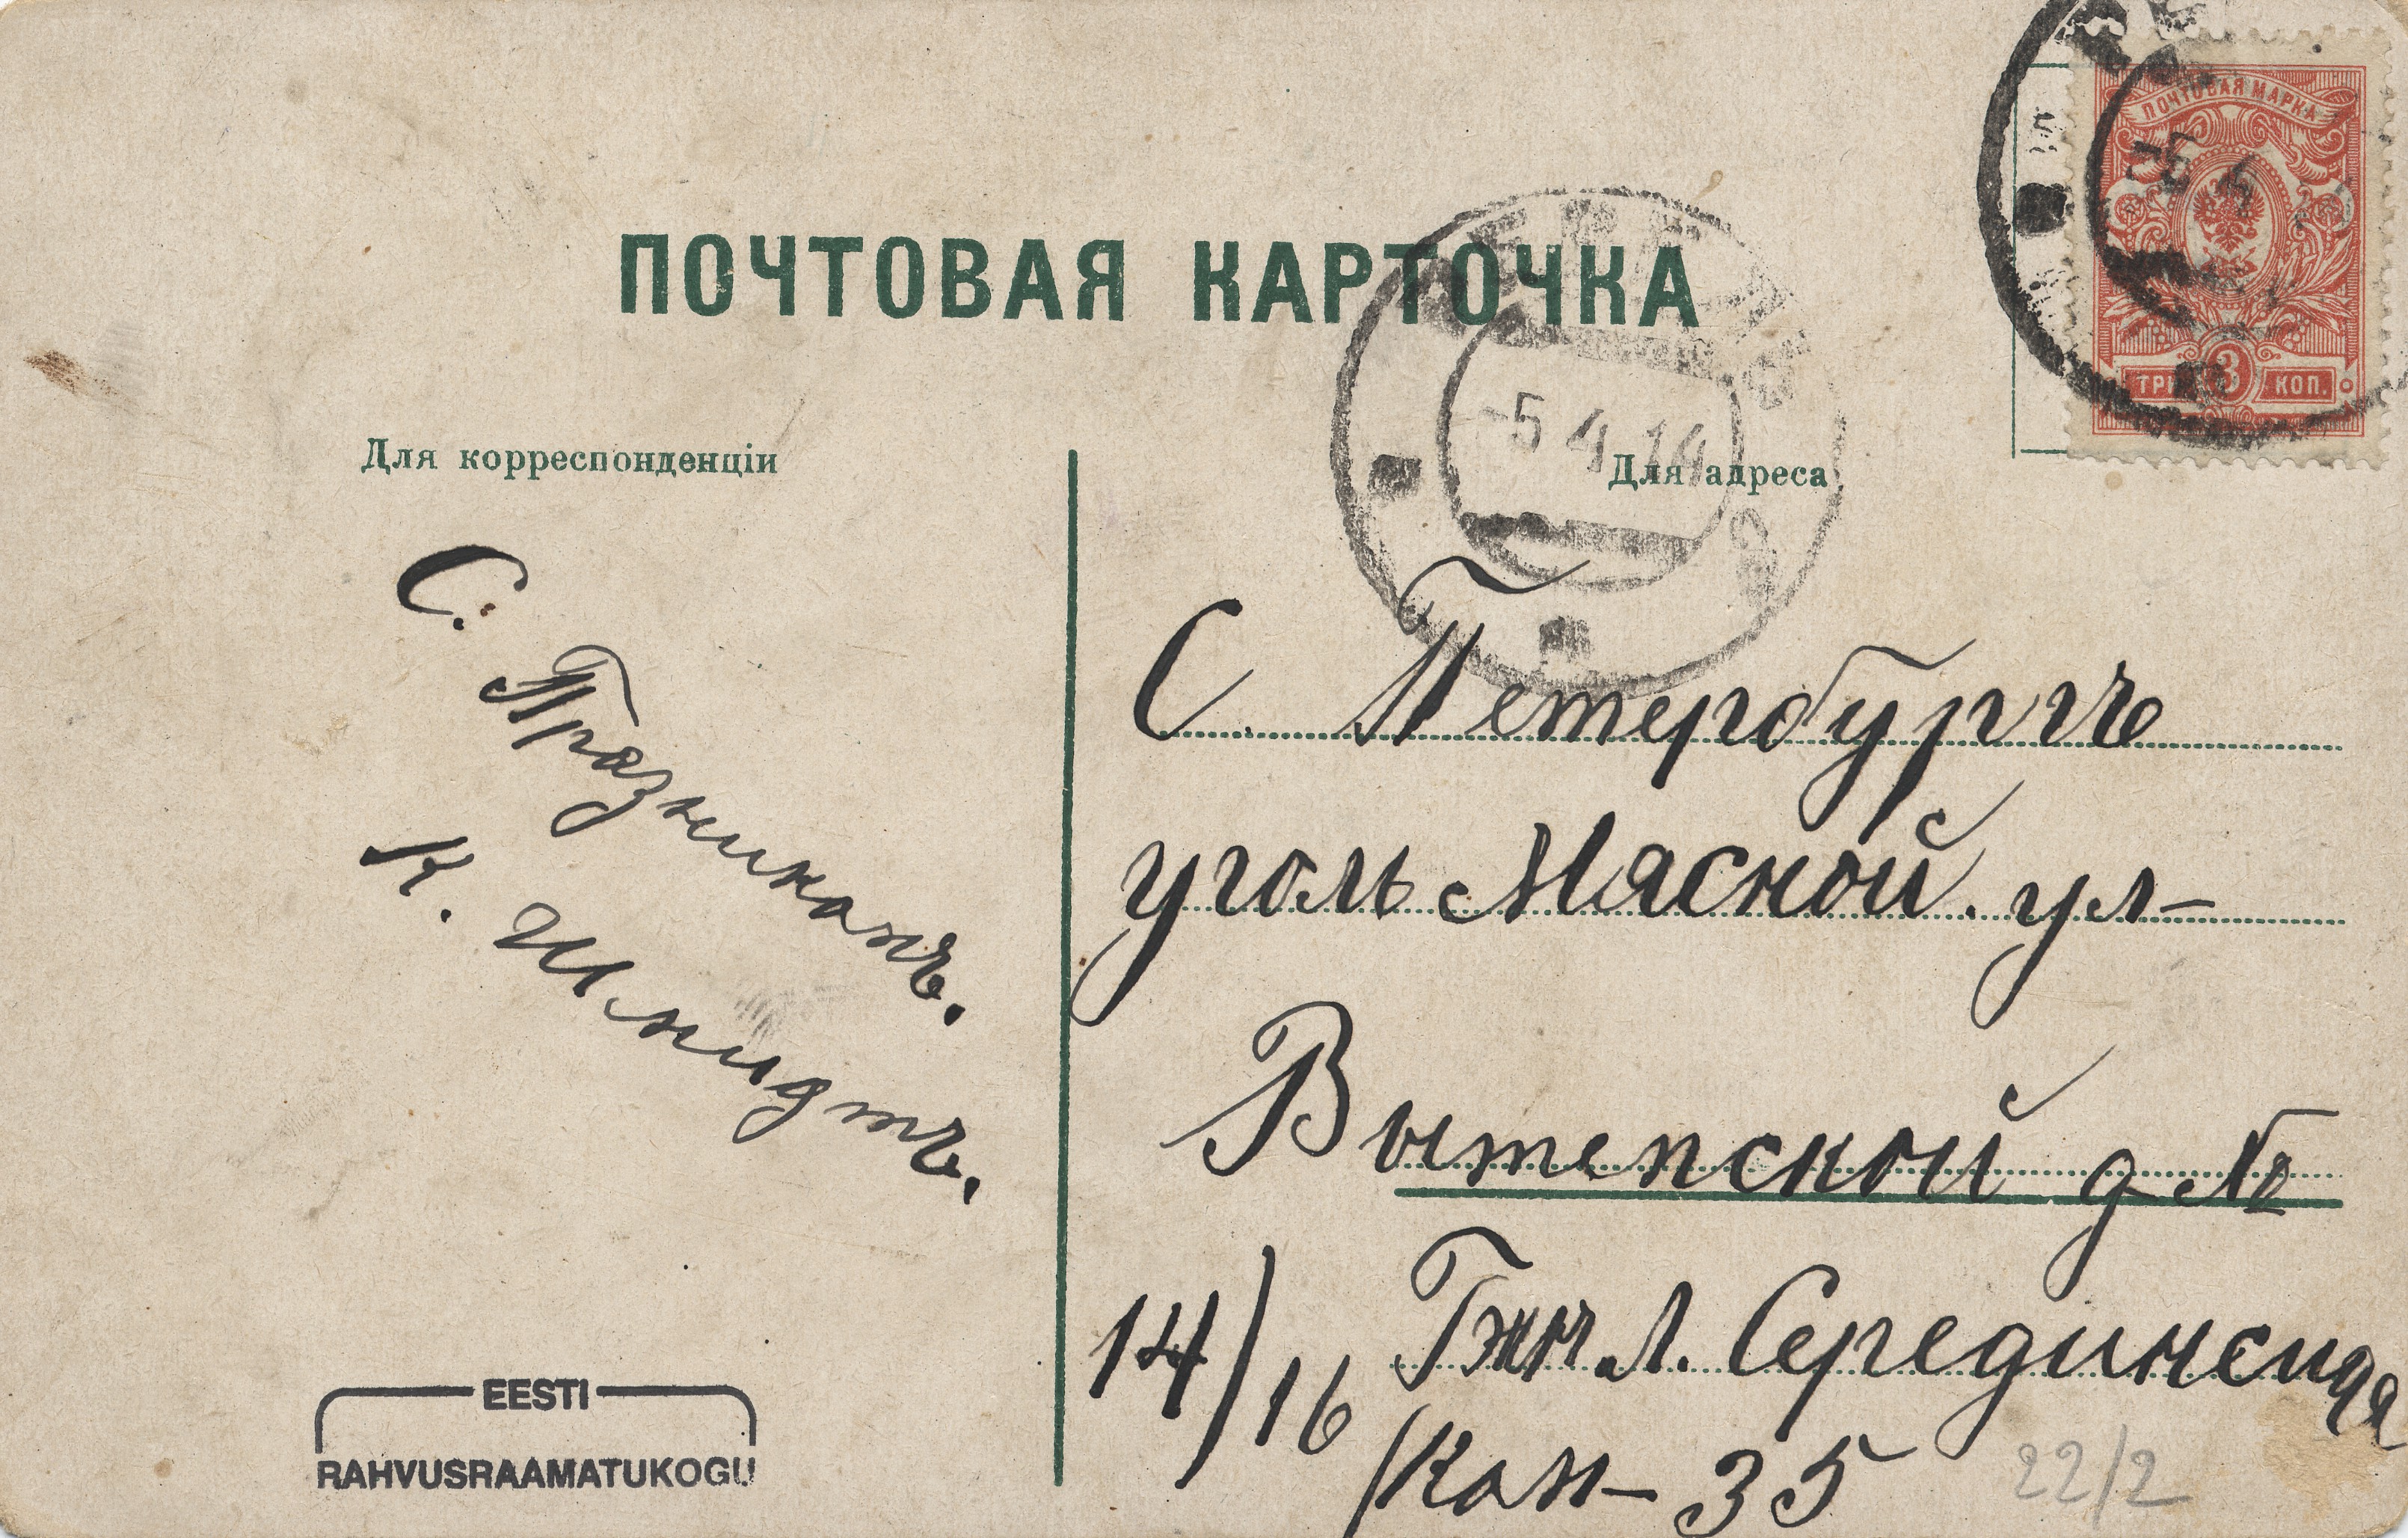 ПОЧТОВАЯ МАРКА
ТРИ 3 КОП.
ПОЧТОВАЯ КАРТОЧКА
-5 4 14
Для корреспонденціи
Для адреса
С. Празникомъ.
К. Шмидтъ.
С. Петербургъ
уголъ Мясной. ул-
Вытепской д №
14/16 Гжи Л. Середински
Ком- 35
22/2
EESTI
RAHVUSRAAMATUKOGU